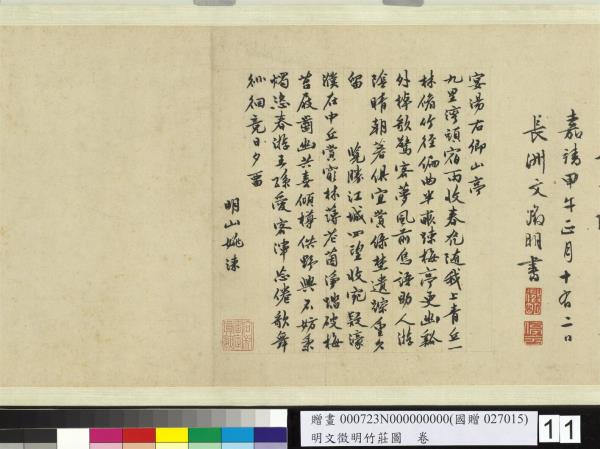 嘉靖甲午正月十有二日
長洲文徵明書
宴湯右卿山亭
九里灣頭宿雨收春光隨我上青丘一
林脩竹徑偏曲半畝疎梅亭更幽
外棹歌驚客夢風前鳥語助人游
陰晴朝暮俱宜賞遺蹤重久
留 覽勝江城四望收宛疑濠
濮在中丘賞窮林薄花茵淨踏破梅
苔屐齒幽共喜傾樽供野興不妨秉
燭恣春游王孫愛客渾忘倦歌舞
徘徊竟日夕留
明山姚淶
贈畫 000723N000000000(國贈 027015)
明文徵明竹莊圖 卷
11